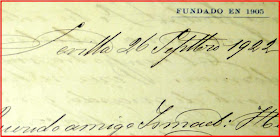 FUNDADO EN 1905
Sevilla 26 Septbre 1922
amigo Ismael